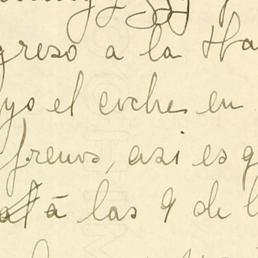 greso a la Ha
yo el coche en
frenos, asi es q
a las 9 de l